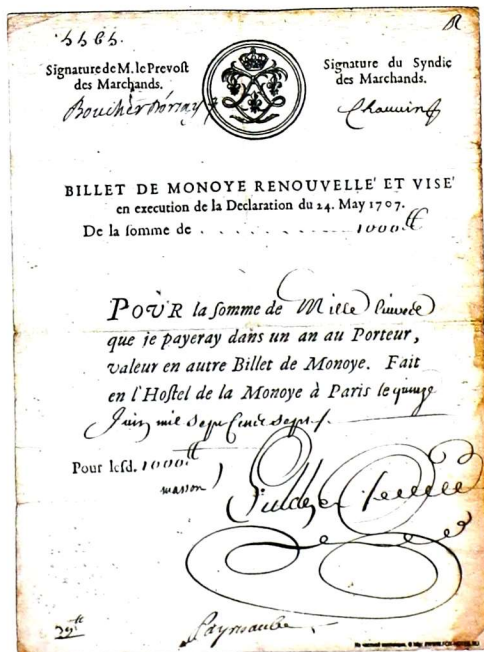 Signature de M. le Prevost
des Marchands.
Signature du Syndic
des Marchands.
Chauvin
BILLET DE MONOYE RENOUVELLE' ET VISE'
en execution de la Declaration du 24. May 1707.
De la somme de . . . . . . . . . . 1000
POUR la somme de Mille
que je payeray dans un an au Porteur,
valeur en autre Billet de Monoye. Fait
en l'Hostel de la Monoye à Paris le quinze
Juin mil sept cinq sept
Pour lesd. 1000
masson